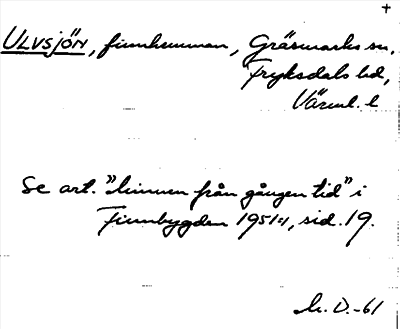 +
ULVSJÖN, finnhemman, Gräsmarks sn,
Fryksdals hd,
Värml. l
Se art. "Minnen från gången tid" i
Finnbygden 1951:1, sid. 19.
M. D. -61